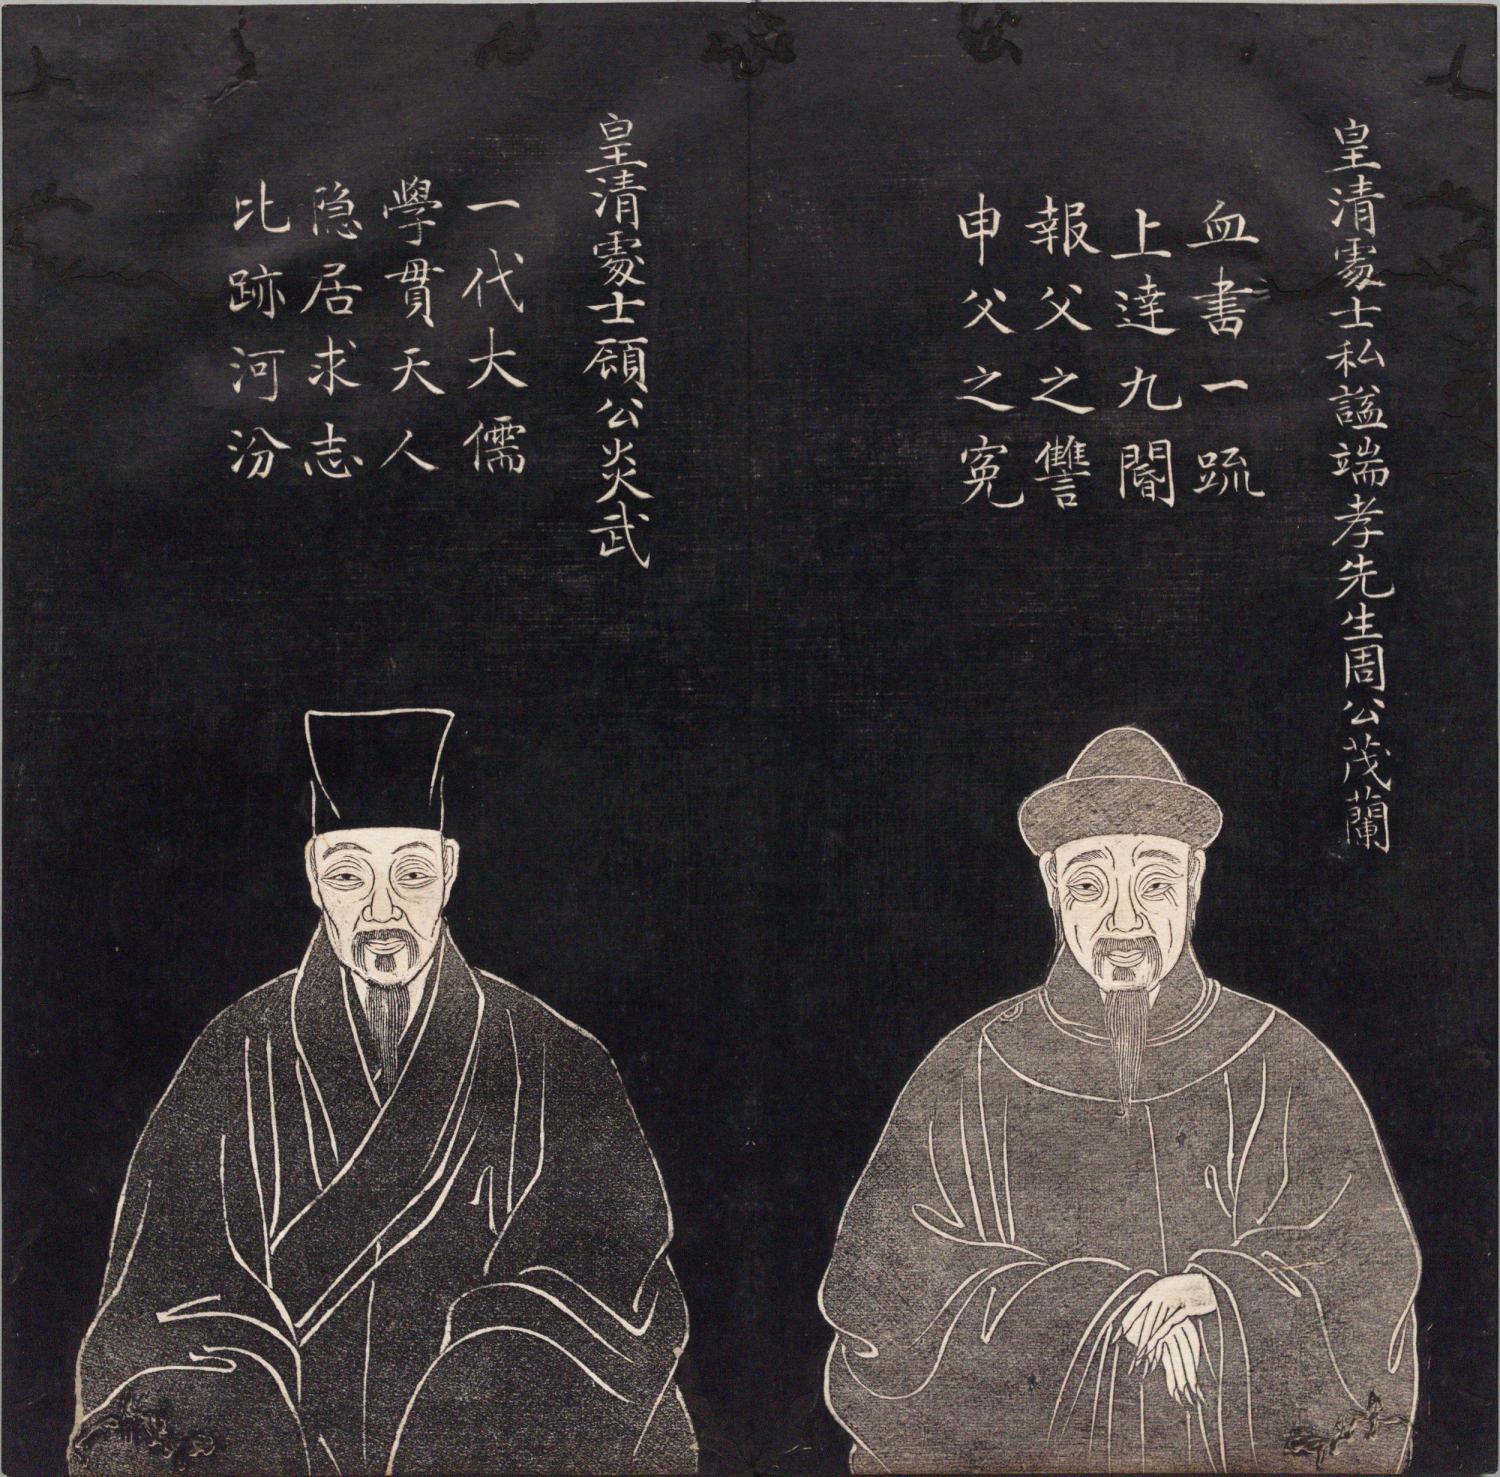 皇清處士私謚端孝先生周公茂蘭
血書一疏
上達九閽
報父之讐
申父之寃
皇清處士顧公炎武
一代大儒
學貫天人
隐居求志
比跡河汾